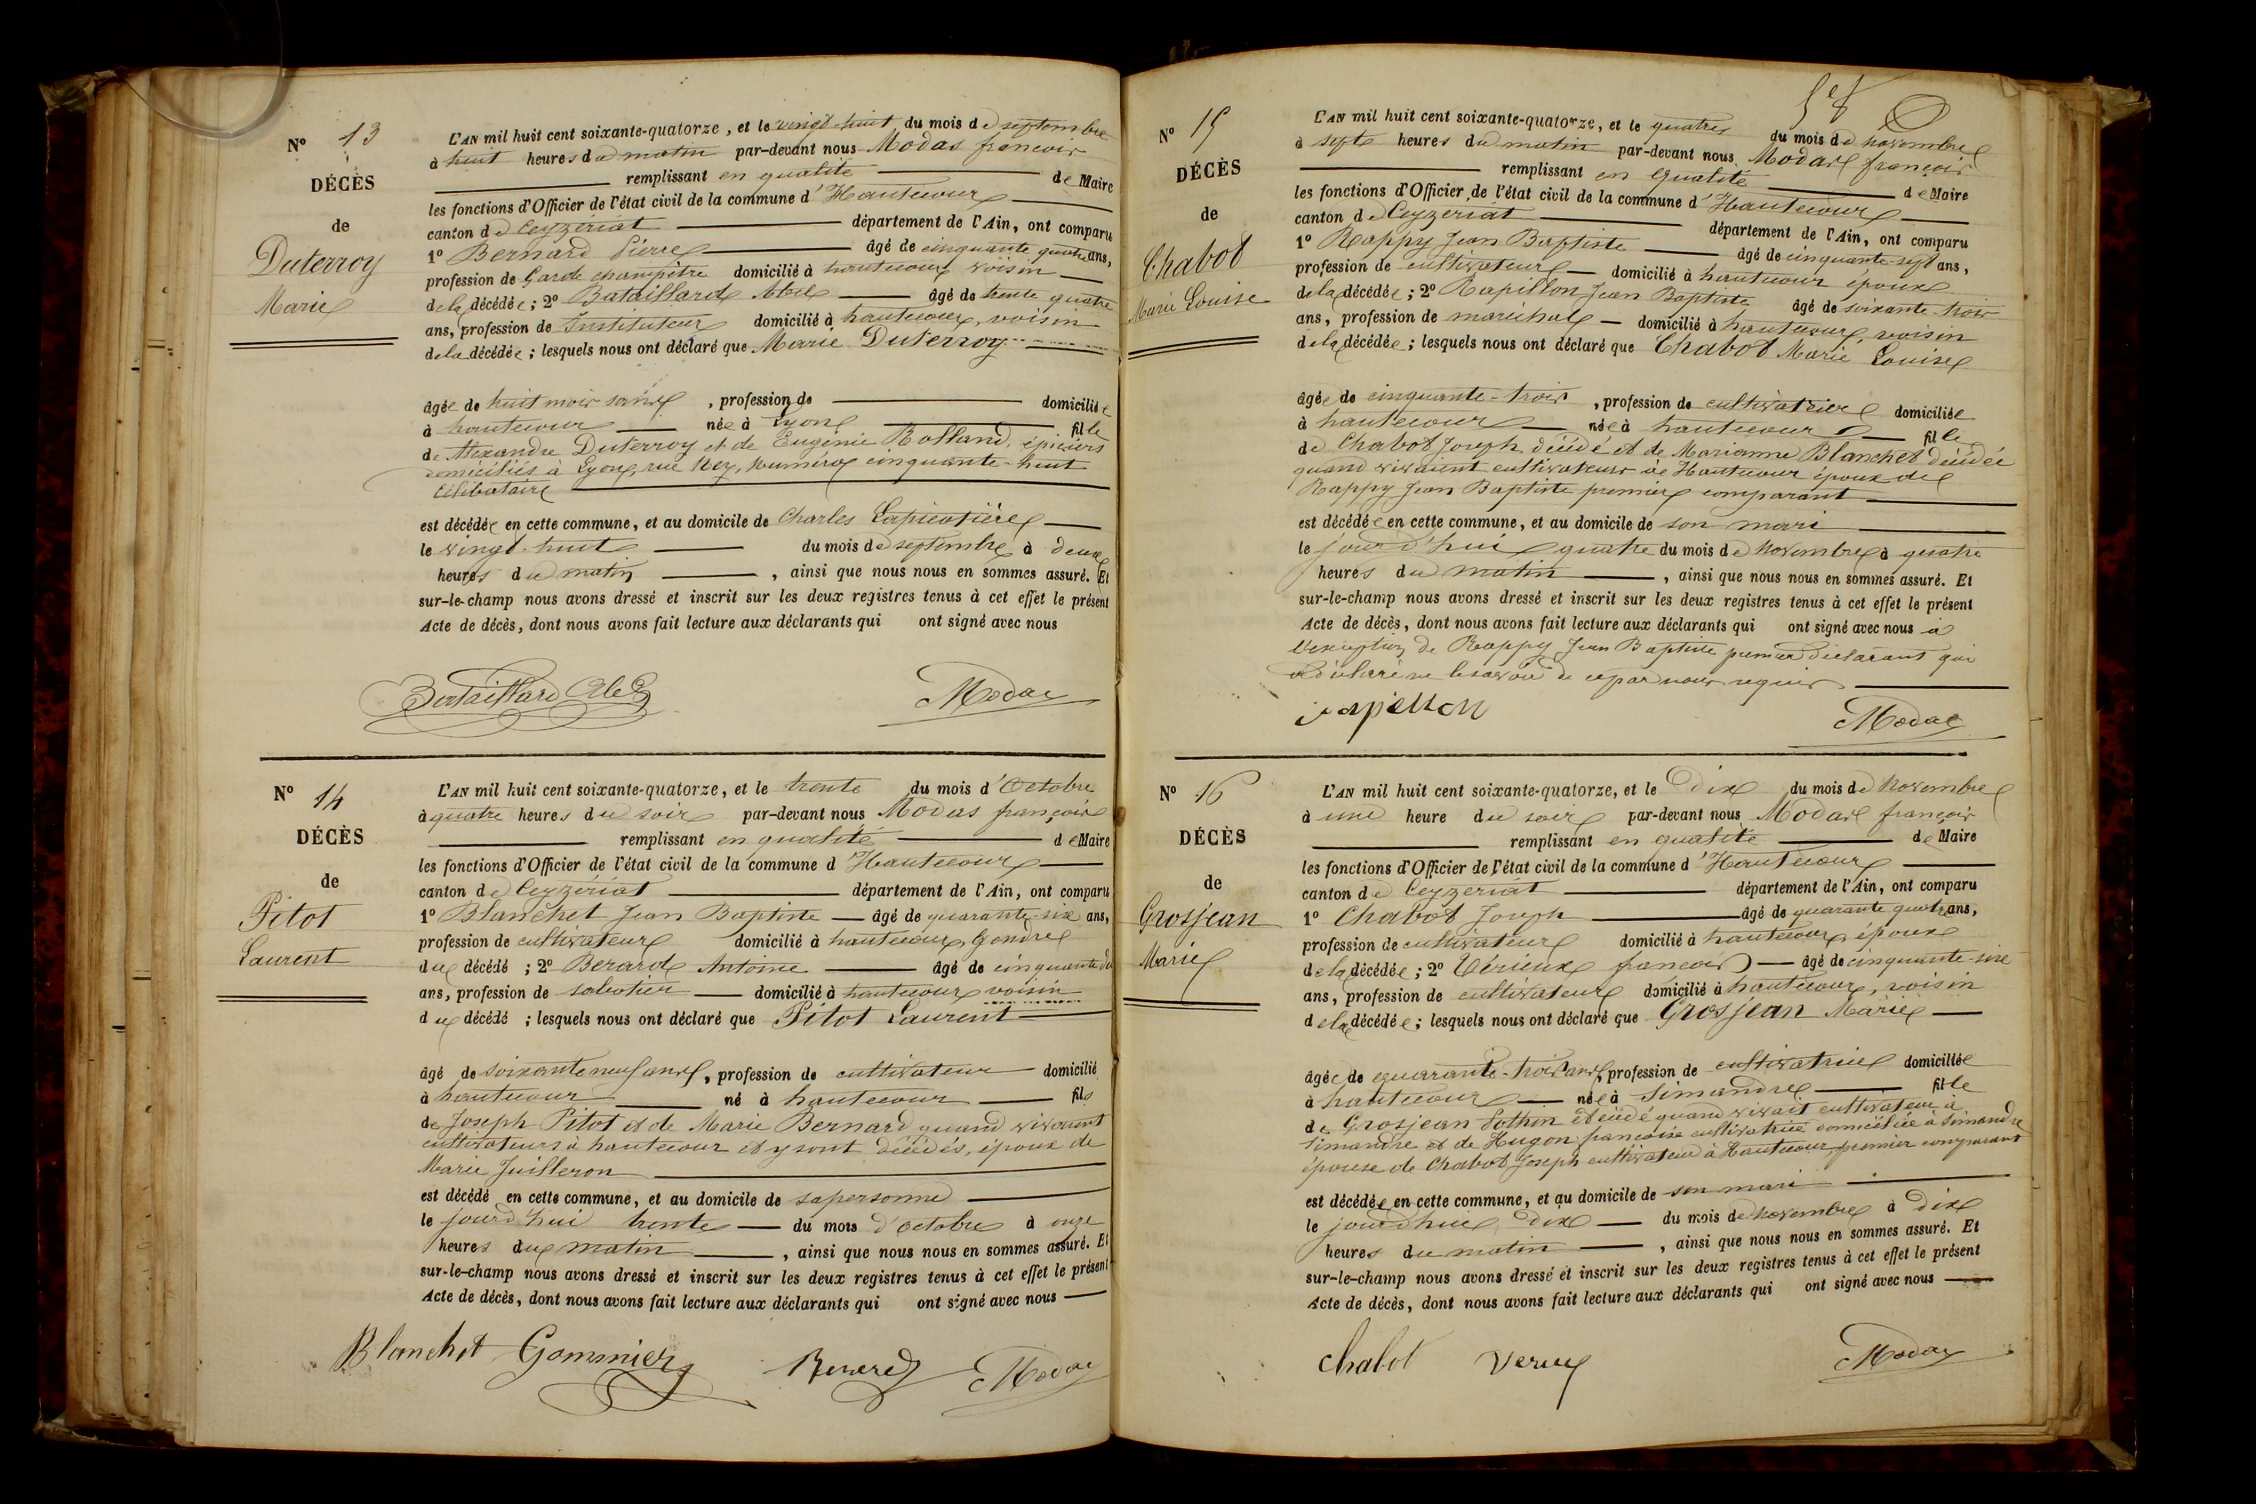 Nº 13
DÉCÈS
de
Duterroy
Marie
L'AN mil huit cent soixante-quatorze, et le vingt-huit du mois de septembre
à huit heures du matin par-devant nous Modas françois
remplissant en qualité de Maire
les fonctions d'Officier de l'état civil de la commune d'Hautecour
canton de Ceyzériat département de l'Ain, ont comparu
1º Bernard Pierre âgé de cinquante quatre ans,
profession de Garde champêtre domicilié à hautecour voisin
de la décédée; 2º Bataillard Abel âgé de trente quatre
ans, profession de Instituteur domicilié à hautecour, voisin
de la décédée; lesquels nous ont déclaré que Marie Duterroy
âgée de huit mois , profession de domiciliée
à hautecour née à Lyon fille
de Alexandre Duterroy et de Eugénie Rolland, épiciers
domiciliés à Lyon, rue Ney, numéro cinquante-huit
célibataire
est décédée en cette commune, et au domicile de Charles
le vingt-huit du mois de septembre à deux
heures du matin , ainsi que nous nous en sommes assuré. Et
sur-le-champ nous avons dressé et inscrit sur les deux registres tenus à cet effet le présent
Acte de décès, dont nous avons fait lecture aux déclarants qui ont signé avec nous
Bataillard Abel Modas
Nº 14
DÉCÈS
de
Pitot
Laurent
L'AN mil huit cent soixante-quatorze, et le trente du mois d'Octobre
à quatre heures du soir par-devant nous Modas françois
remplissant en qualité de Maire
les fonctions d'Officier de l'état civil de la commune d'Hautecour
canton de Ceyzériat département de l'Ain, ont comparu
1º Blanchet Jean Baptiste âgé de quarante-six ans,
profession de cultivateur domicilié à hautecour, Gendre
du décédé; 2º Berard Antoine âgé de cinquante
ans, profession de sabotier domicilié à hautecour voisin
du décédé; lesquels nous ont déclaré que Pitot Laurent
âgé de soixante neuf ans, profession de cultivateur domicilié
à hautecour né à hautecour fils
de Joseph Pitot et de Marie Bernard quand vivaient
cultivateurs à hautecour et y sont décédés, époux de
Marie Juilleron
est décédé en cette commune, et au domicile de sa personne
le jourd'hui trente du mois d'octobre à onze
heures du matin , ainsi que nous nous en sommes assuré. Et
sur-le-champ nous avons dressé et inscrit sur les deux registres tenus à cet effet le présent
Acte de décès, dont nous avons fait lecture aux déclarants qui ont signé avec nous
Blanchet Gommier Berard Modas
Nº 15
DÉCÈS
de
Chabot
Marie Louise
L'AN mil huit cent soixante-quatorze, et le quatre du mois de novembre
à sept heures du matin par-devant nous Modas françois
remplissant en qualité de Maire
les fonctions d'Officier de l'état civil de la commune d'Hautecour
canton de Ceyzeriat département de l'Ain, ont comparu
1º Rappy Jean Baptiste âgé de cinquante-sept ans,
profession de cultivateur domicilié à hautecour époux
de la décédée; 2º Rapillon Jean Baptiste âgé de soixante-trois
ans, profession de maréchal domicilié à hautecour, voisin
de la décédée; lesquels nous ont déclaré que Chabot Marie Louise
âgée de cinquante-trois , profession de cultivatrice domiciliée
à hautecour née à hautecour fille
de Chabot Joseph décédé et de Marianne Blanchet décédée
quand vivaient cultivateurs à Hautecour épouse de
Rappy Jean Baptiste premier comparant
est décédée en cette commune, et au domicile de son mari
le jourd'hui quatre du mois de Novembre à quatre
heures du matin , ainsi que nous nous en sommes assuré. Et
sur-le-champ nous avons dressé et inscrit sur les deux registres tenus à cet effet le présent
Acte de décès, dont nous avons fait lecture aux déclarants qui ont signé avec nous à
l'exception de Rappy Jean Baptiste premier déclarant qui
a déclaré ne le savoir de ce par nous requis
rapillon Modas
Nº 16
DÉCÈS
de
Grosjean
Marie
L'AN mil huit cent soixante-quatorze, et le Dix du mois de Novembre
à une heure du soir par-devant nous Modas françois
remplissant en qualité de Maire
les fonctions d'Officier de l'état civil de la commune d'Hautecour
canton de Ceyzeriat département de l'Ain, ont comparu
1º Chabot Joseph âgé de quarante quatre ans,
profession de cultivateur domicilié à hautecour, époux
de la décédée; 2º françois âgé de cinquante-six
ans, profession de cultivateur domicilié à hautecour, voisin
de la décédée; lesquels nous ont déclaré que Grosjean Marie
âgée de quarante-trois ans, profession de cultivatrice domiciliée
à hautecour née à Simandre fille
de Grosjean Pothin décédé quand vivait cultivateur à
Simandre et de Hugon françoise cultivatrice domiciliée à Simandre
épouse de Chabot Joseph cultivateur à Hautecour premier comparant
est décédée en cette commune, et au domicile de son mari
le jourd'hui Dix du mois de novembre à Dix
heures du matin , ainsi que nous nous en sommes assuré. Et
sur-le-champ nous avons dressé et inscrit sur les deux registres tenus à cet effet le présent
Acte de décès, dont nous avons fait lecture aux déclarants qui ont signé avec nous
Chabot Modas